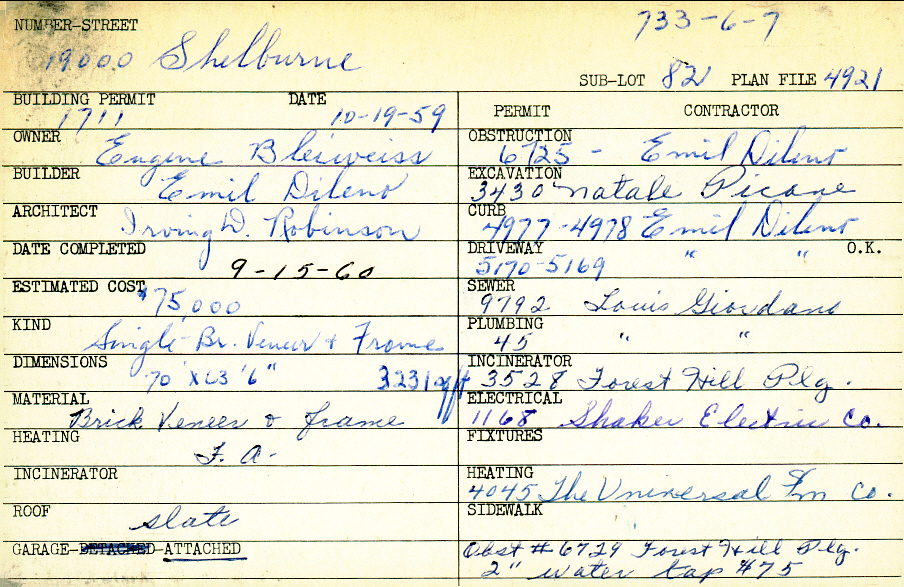 NUMBER-STREET 733-6-7
19000 Shelburne
SUB-LOT 82 PLAN FILE 4921
BUILDING PERMIT DATE
1711 10-19-59
OWNER Eugene Bleiweiss
BUILDER Emil Dileno
ARCHITECT Irving D. Robinson
DATE COMPLETED 9-15-60
ESTIMATED COST $75,000
KIND Single-Br. Veneer & Frame
DIMENSIONS 70' X 63'6" 3231 sq ft
MATERIAL Brick Veneer & frame
HEATING F. A.
INCINERATOR
ROOF slate
GARAGE-DETACHED-ATTACHED
PERMIT CONTRACTOR
OBSTRUCTION 6725 - Emil Dileno
EXCAVATION 3430 Natale Picone
CURB 4977-4978 Emil Dileno
DRIVEWAY 5170-5169 " " O.K.
SEWER 9792 Louis Giordano
PLUMBING 45 " "
INCINERATOR 3528 Forest Hill Plg.
ELECTRICAL 1168 Shaker Electric Co.
FIXTURES
HEATING 4045 The Universal Frn Co.
SIDEWALK
Obst # 6729 Forest Hill Plg.
2" water tap #75